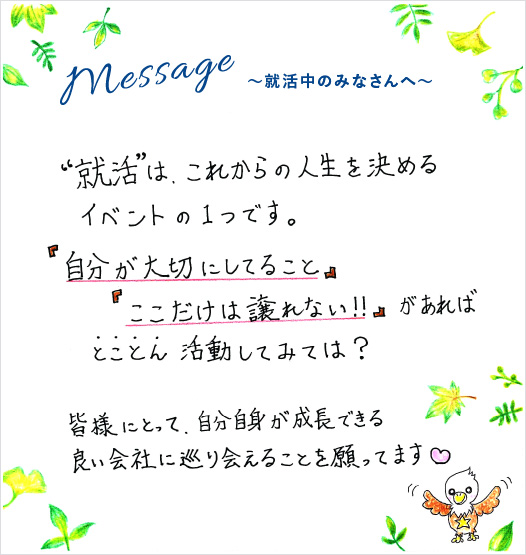 Message ～就活中のみなさんへ～
“就活”は、これからの人生を決める
イベントの1つです。
『自分が大切にしてること』
『ここだけは譲れない!!』があれば
とことん 活動してみては？
皆様にとって、自分自身が成長できる
良い会社に巡り会えることを願ってます♡